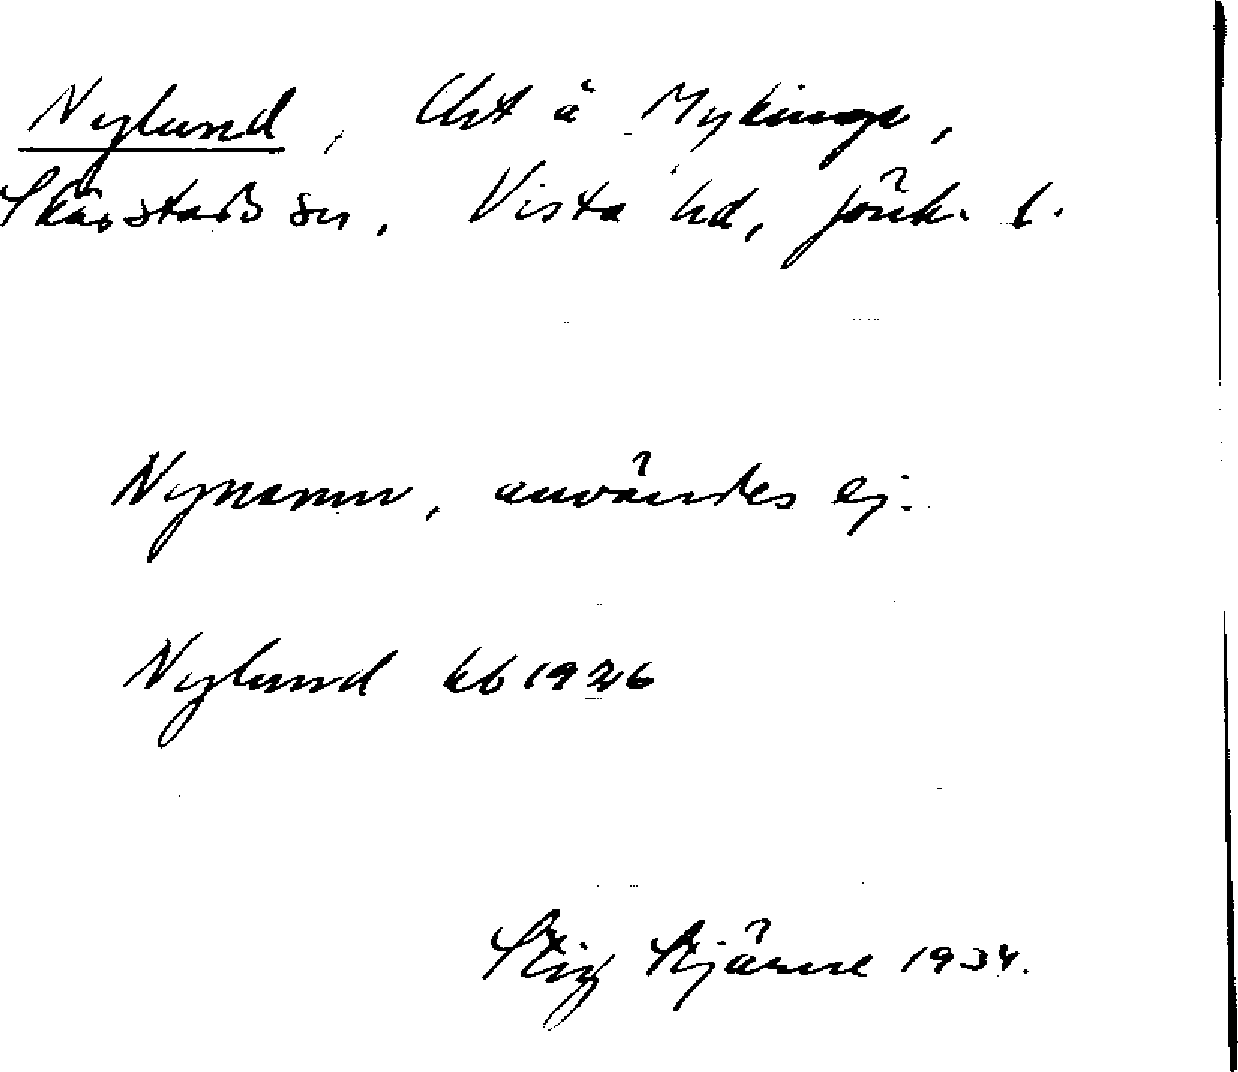 Nylund, Lht å Mykinge,
Skärstads sn, Vista hd, Jönk. l.
Nynamn, användes ej.
Nylund kb 1926
Stig Stjärne 1934.